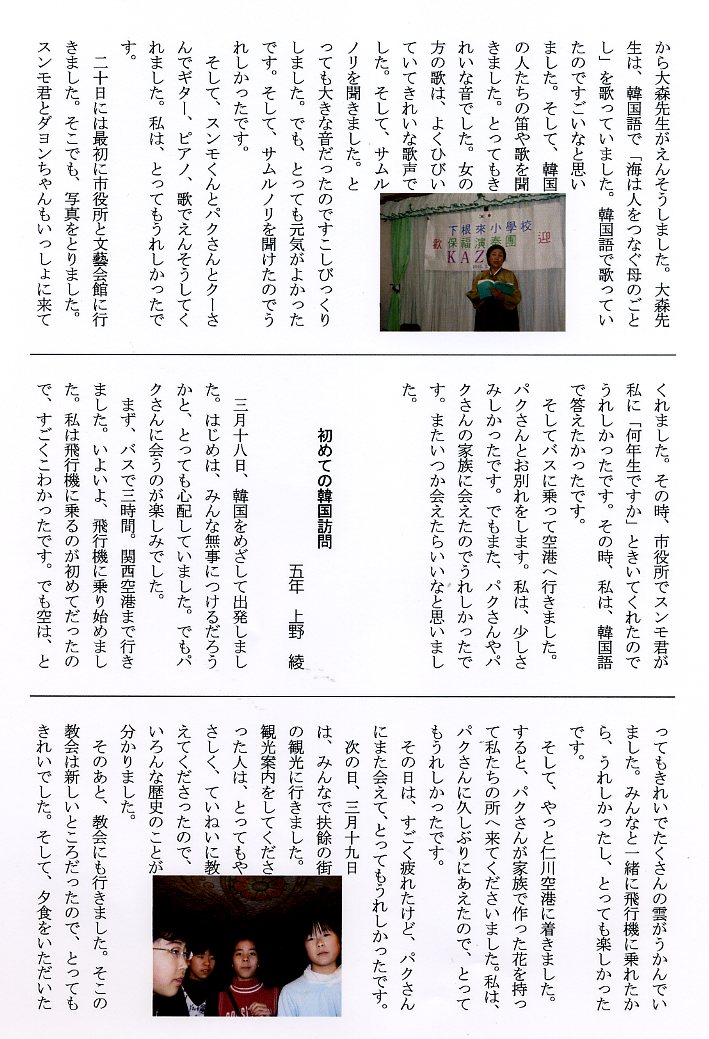 から大森先生がえんそうしました。大森先
生は、韓国語で「海は人をつなぐ母のごと
し」を歌っていました。韓国語で歌ってい
たのですごいなと思い
ました。そして、韓国
の人たちの笛や歌を聞
きました。とってもき
れいな音でした。女の
方の歌は、よくひびい
ていてきれいな歌声で
した。そして、サムル
ノリを聞きました。と
っても大きな音だったのですこしびっくり
しました。でも、とっても元気がよかった
です。そして、サムルノリを聞けたのでう
れしかったです。
そして、スンモくんとパクさんとクーさ
んでギター、ピアノ、歌でえんそうしてく
れました。私は、とってもうれしかったで
す。
二十日には最初に市役所と文藝会館に行
きました。そこでも、写真をとりました。
スンモ君とダヨンちゃんもいっしょに来て
下根來小學校
歡 保福演奏團 迎
KAZ
くれました。その時、市役所でスンモ君が
私に「何年生ですか」ときいてくれたので
うれしかったです。その時、私は、韓国語
で答えたかったです。
そしてバスに乗って空港へ行きました。
パクさんとお別れをします。私は、少しさ
みしかったです。でもまた、パクさんやパ
クさんの家族に会えたのでうれしかったで
す。またいつか会えたらいいなと思いまし
た。
初めての韓国訪問
五年 上野 綾
三月十八日、韓国をめざして出発しまし
た。はじめは、みんな無事につけるだろう
かと、とっても心配していました。でもパ
クさんに会うのが楽しみでした。
まず、バスで三時間。関西空港まで行き
ました。いよいよ、飛行機に乗り始めまし
た。私は飛行機に乗るのが初めてだったの
で、すごくこわかったです。でも空は、と
ってもきれいでたくさんの雲がうかんでい
ました。みんなと一緒に飛行機に乗れたか
ら、うれしかったし、とっても楽しかった
です。
そして、やっと仁川空港に着きました。
すると、パクさんが家族で作った花を持っ
て私たちの所へ来てくださいました。私は、
パクさんに久しぶりにあえたので、とって
もうれしかったです。
その日は、すごく疲れたけど、パクさん
にまた会えて、とってもうれしかったです。
次の日、三月十九日
は、みんなで扶餘の街
の観光に行きました。
観光案内をしてくださ
った人は、とってもや
さしく、ていねいに教
えてくださったので、
いろんな歴史のことが
分かりました。
そのあと、教会にも行きました。そこの
教会は新しいところだったので、とっても
きれいでした。そして、夕食をいただいた